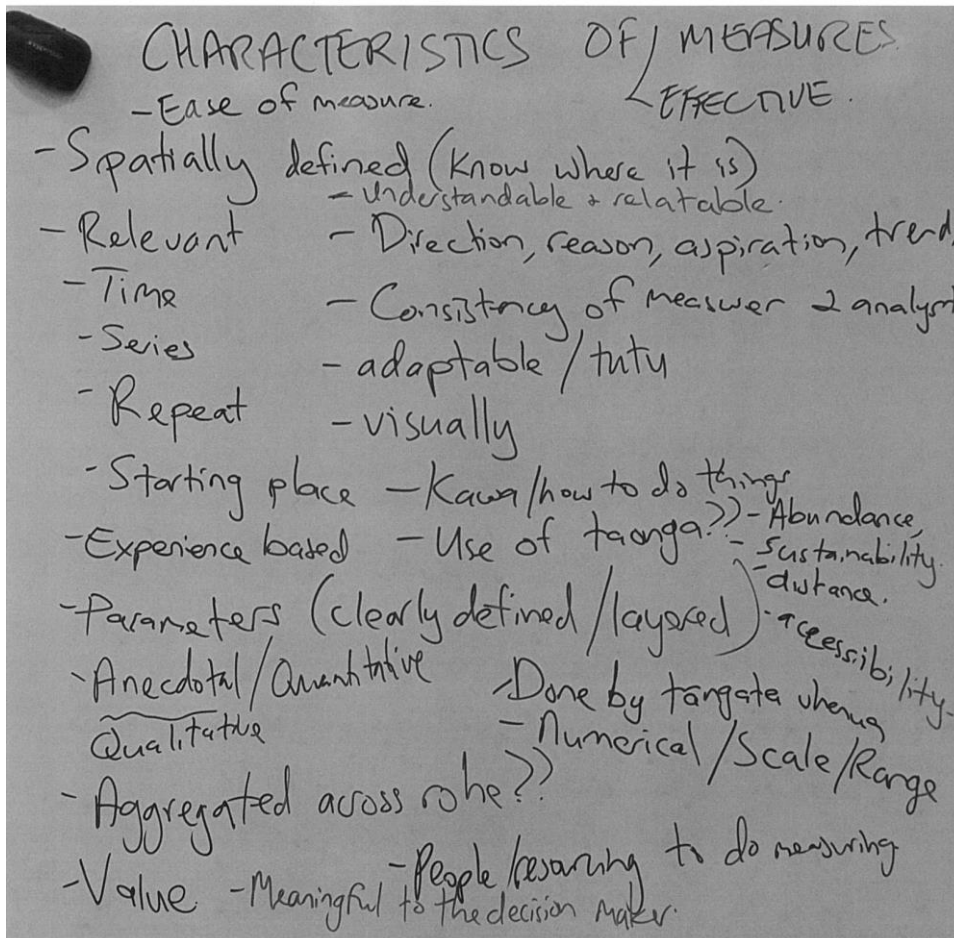 CHARACTERISTICS OF / MEASURES
< EFFECTIVE.
- Ease of measure.
- Spatially defined (Know where it is)
- Understandable + relatable.
- Relevant - Direction, reason, aspiration, trend,
- Time - Consistency of measurer & analyst
- Series - adaptable / tutu
- Repeat - visually
- Starting place - Kawa/how to do things
- Experience based - Use of taonga?? - Abundance,
- Sustainability.
- distance.
- accessibility.
- Parameters (clearly defined / layered)
- Anecdotal / Quantitative - Done by tangata whenua
Qualitative - Numerical / Scale / Range
- Aggregated across rohe??
- People / resourcing to do measuring
- Value - Meaningful to the decision maker.